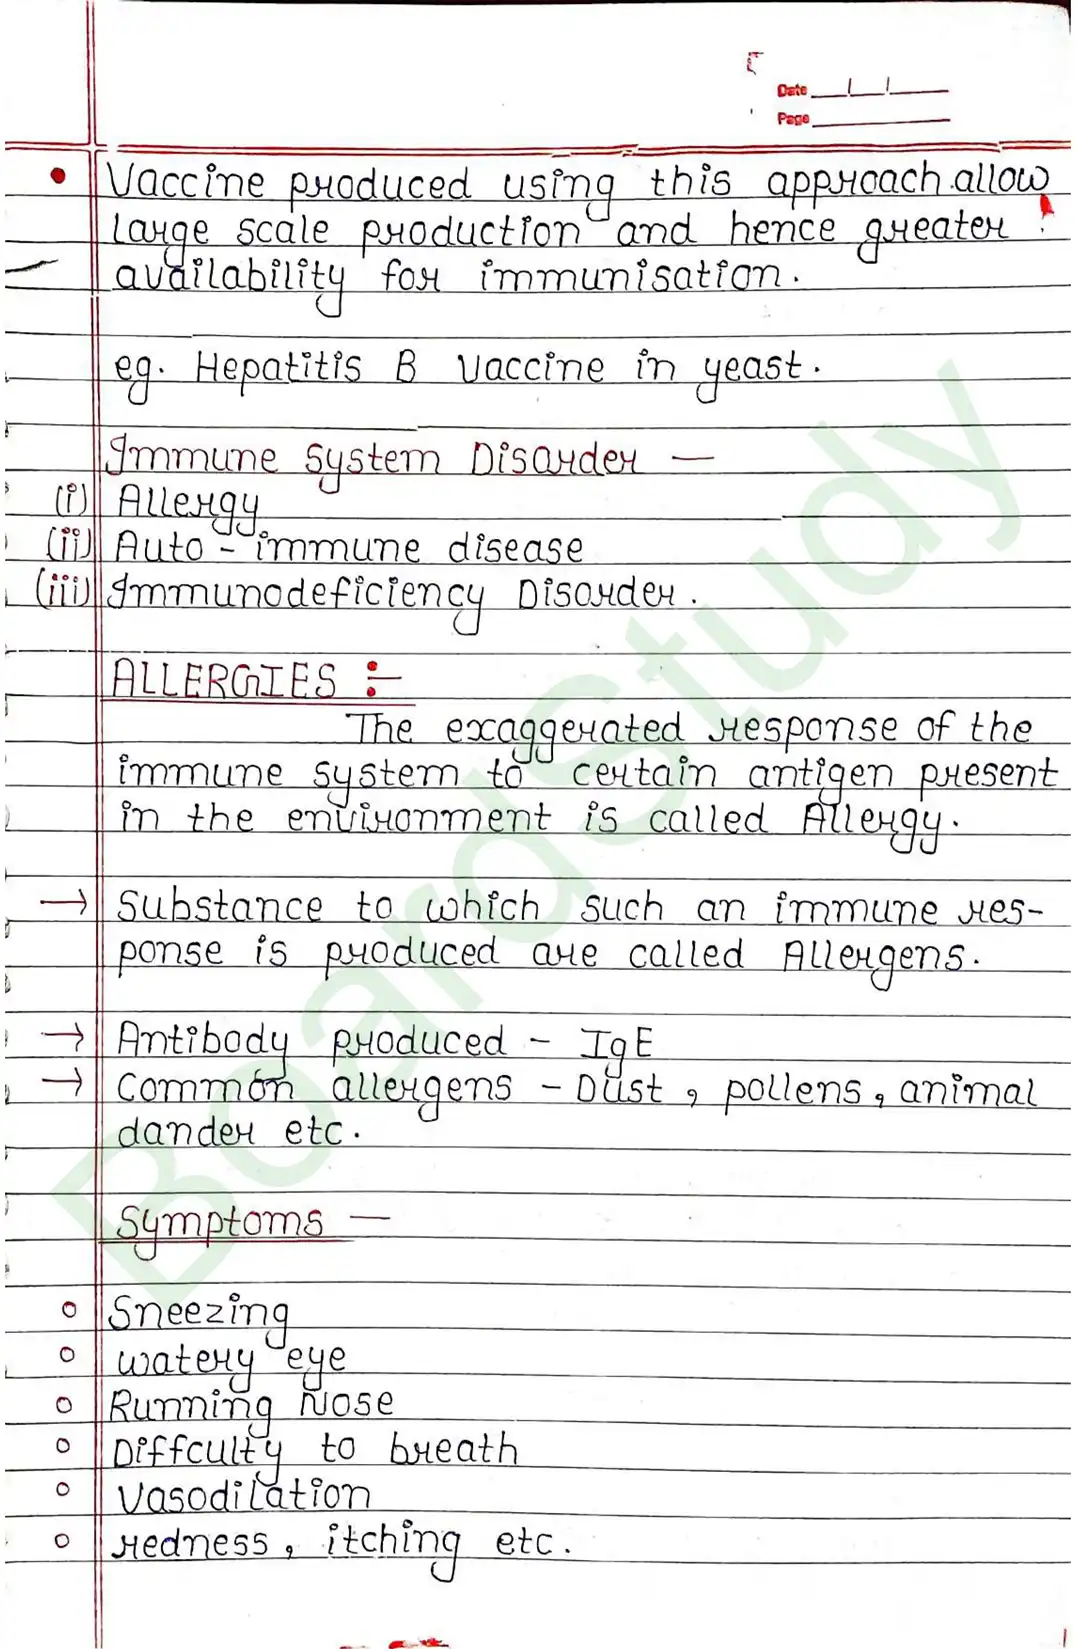 Date
Page
• Vaccine produced using this approach allow
large scale production and hence greater
availability for immunisation.
eg. Hepatitis B Vaccine in yeast.
Immune System Disorder —
(i) Allergy
(ii) Auto - immune disease
(iii) Immunodeficiency Disorder.
ALLERGIES :-
The exaggerated response of the
immune system to certain antigen present
in the environment is called Allergy.
→ Substance to which such an immune res-
ponse is produced are called Allergens.
→ Antibody produced - IgE
→ Common allergens - Dust, pollens, animal
dander etc.
Symptoms —
o Sneezing
o watery eye
o Running Nose
o Diffculty to breath
o Vasodilation
o redness, itching etc.
BoardStudy